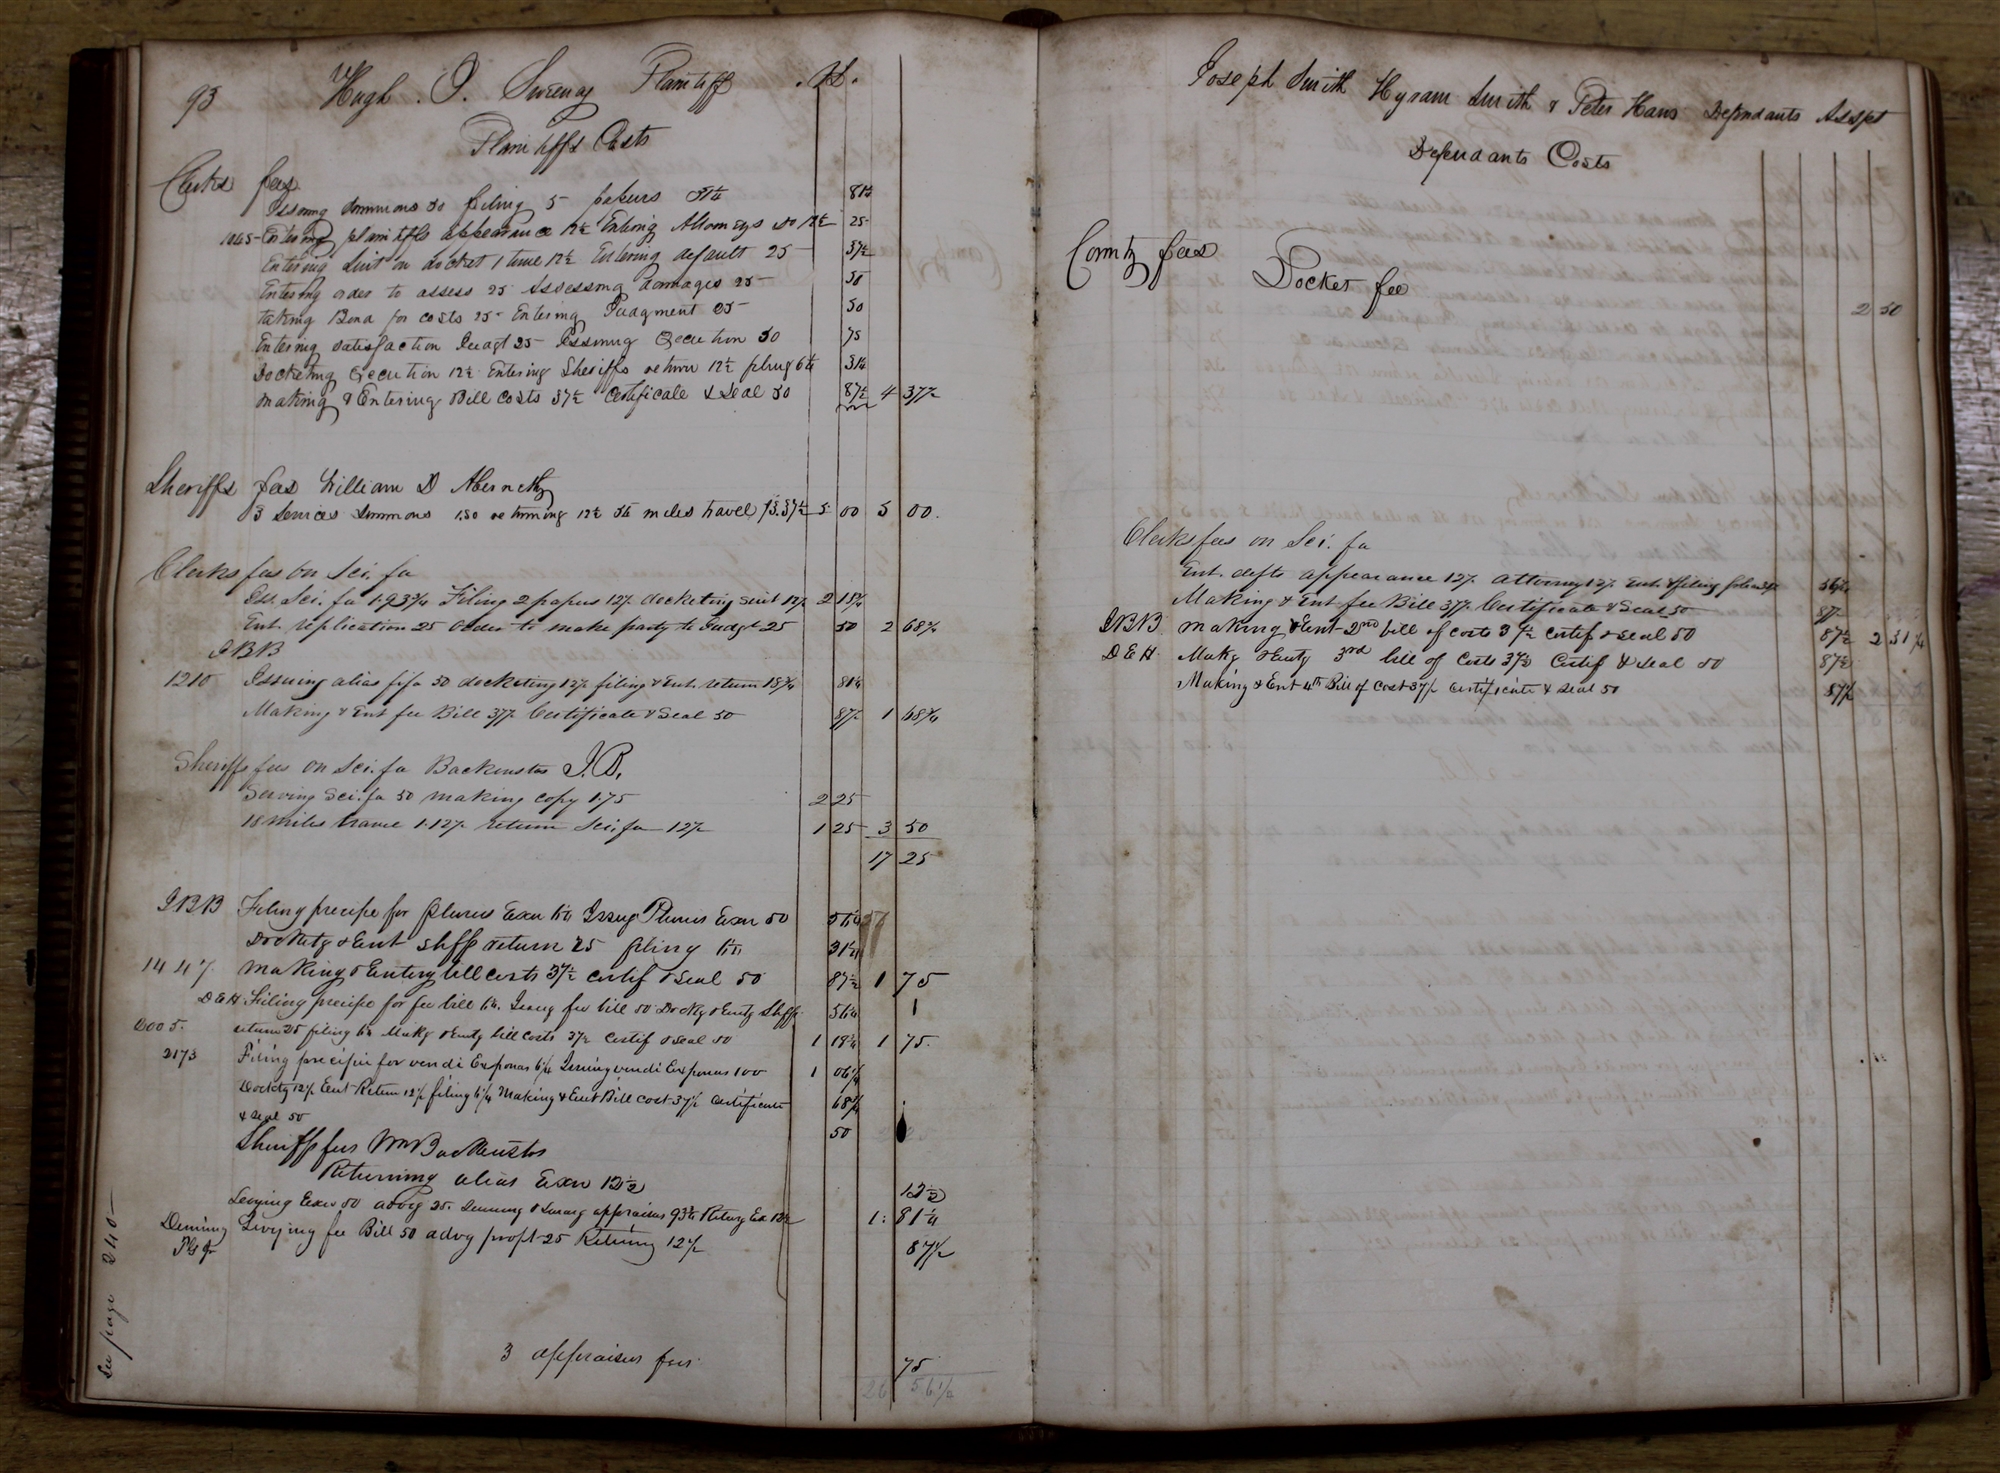 93 Hugh . O. Sweeney Plaintiff
Plaintiffs Costs
Clerks fees
Issuing Summons 50 filing 5 papers 31¼ 81¼
1045 Entering plaintiffs appearance 12½ Entering Attorneys do 12½ 25
Entering Suit on docket 1 time 12½ Entering default 25 37½
Entering order to assess 25 Assessing Damages 25 50
taking Bond for costs 25 Entering Judgment 25 50
Entering Satisfaction Judgt 25 Issuing Execution 50 75
Docketing Execution 12½ Entering Sheriffs return 12½ filing 6¼ 31¼
making & Entering Bill Costs 37½ Certificate & Seal 50 87½ 4 37½
Sheriffs fees William D Abernethy
3 Services Summons 1.50 returning 12½ miles travel 5 00 5 00.
Clerks fees on Sci. fa
Iss. Sci. fa 1.93¾ Filing 2 papers 12½ docketing suit 12½ 2 18¾
Ent. replication 25 Order to make party to Judgt 25 50 2 68¾
JBB
1210 Issuing alias fifa 50 docketing 12½ filing & Ent. return 18¾ 81¼
Making & Ent fee Bill 37½ Certificate & Seal 50 87½ 1 68¾
Sheriffs fees on Sci. fa Backenstos J. B.
Serving Sci. fa 50 making copy 1.75 2 25
18 miles travel 1.12½ return Sci. fa 12½ 1 25 3 50
17 25
JBB Filing precipe for pluries Exn 6¼ Issug Pluries Exn 50 56¼
Docketg & Ent Shffs return 25 filing 6¼ 31¼
1447. making & Entering bill costs 37½ certif & seal 50 87½ 1 75
D & H Filing precipe for fee bill 6¼. Issug fee bill 50 Docktg & Entg Shffs 56¼
2005. return 25 filing 6¼ Makg & Entg bill costs 37½ Certif & Seal 50 1 18¾ 1 75.
2173 Filing precipie for vendi Exponas 6¼ Issuing vendi Exponas 100 1 06¼
Docktg 12½ Ent Return 12½ filing 6¼ Making & Ent Bill cost 37½ Certificate 68¾
& Seal 50 50
Sheriffs fees Wm Backenstos
Returning alias Exn 12½ 12½
Levying Exn 50 advg 25. Summg & Swarg appraisers 93¾ Returg Ex 12½ 1: 81¼
Deming Levying fee Bill 50 advg propt 25 Returning 12½ 87½
3 appraisers fees 75
26 56½
See page 240
Joseph Smith Hyram Smith & Peter Haws Defendants Asspt
Defendants Costs
County fees
Docket fee 2 50
Clerks fees on Sci. fa
Ent. defts appearance 12½ attorney 12½ Ent. & filing
Making & Ent fee Bill 37½ Certificate & Seal 50 87½
JBB making & Ent 2nd bill of costs 37½ certif & seal 50 87½ 2 31¼
D & H Makg & Entg 3rd bill of Costs 37½ Certif & Seal 50 87½
Making & Ent 4th Bill of Cost 37½ Certificate & Seal 50 87½